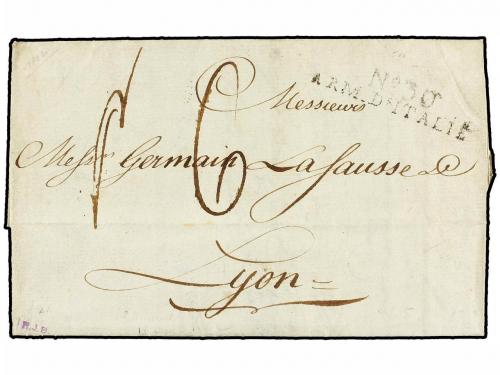 Nº 30
ARM. D'ITALIE
6
Messieurs
Mess. Germain Lasausse &
Lyon =
R.J.B.